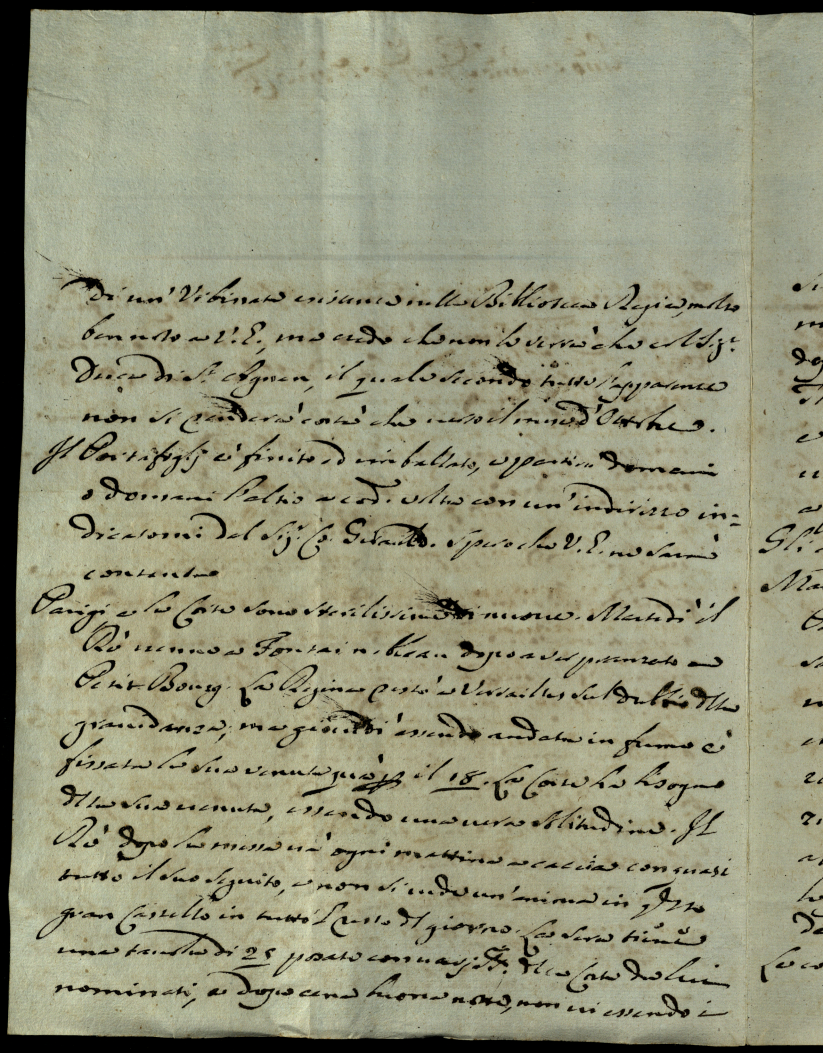 di un' Urbinate esistente nella Biblioteca Regia, molto
ben noto a V. E., ma credo che non lo verrà che col Sig.r
Duca di S.t Agnan, il quale secondo tutte l'apparenze
non si renderà costà che verso il mese d'Ottobre.
Il Portafoglj è finito ed imballato, e partirà domani
o domani l'altro a cod.a volta con un' indirizzo in=
dicatomi dal Sig.r Co. Giraud. Spero che V. E. ne sarà
contenta
Parigi e la Corte sono sterilissime di nuove. Martedì il
Rè venne a Fontainebleau dopo aver pranzato a
Petit-Bourg. La Regina restò a Versailles sul dubbio della
gravidanza; ma giovedì essendo andata in fumo è
fissata la sua venuta quà il 18. La Corte ha bisogno
della sua venuta, essendo una vera solitudine. Il
Rè dopo la messa và ogni mattina a caccia con quasi
tutto il suo seguito, e non si vede un'anima in questo
gran Castello in tutto il resto del giorno. La sera tiene
una tavola di 25 posate con varj della Corte da lui
nominati, e dopo cena buona notte, non vi essendo i